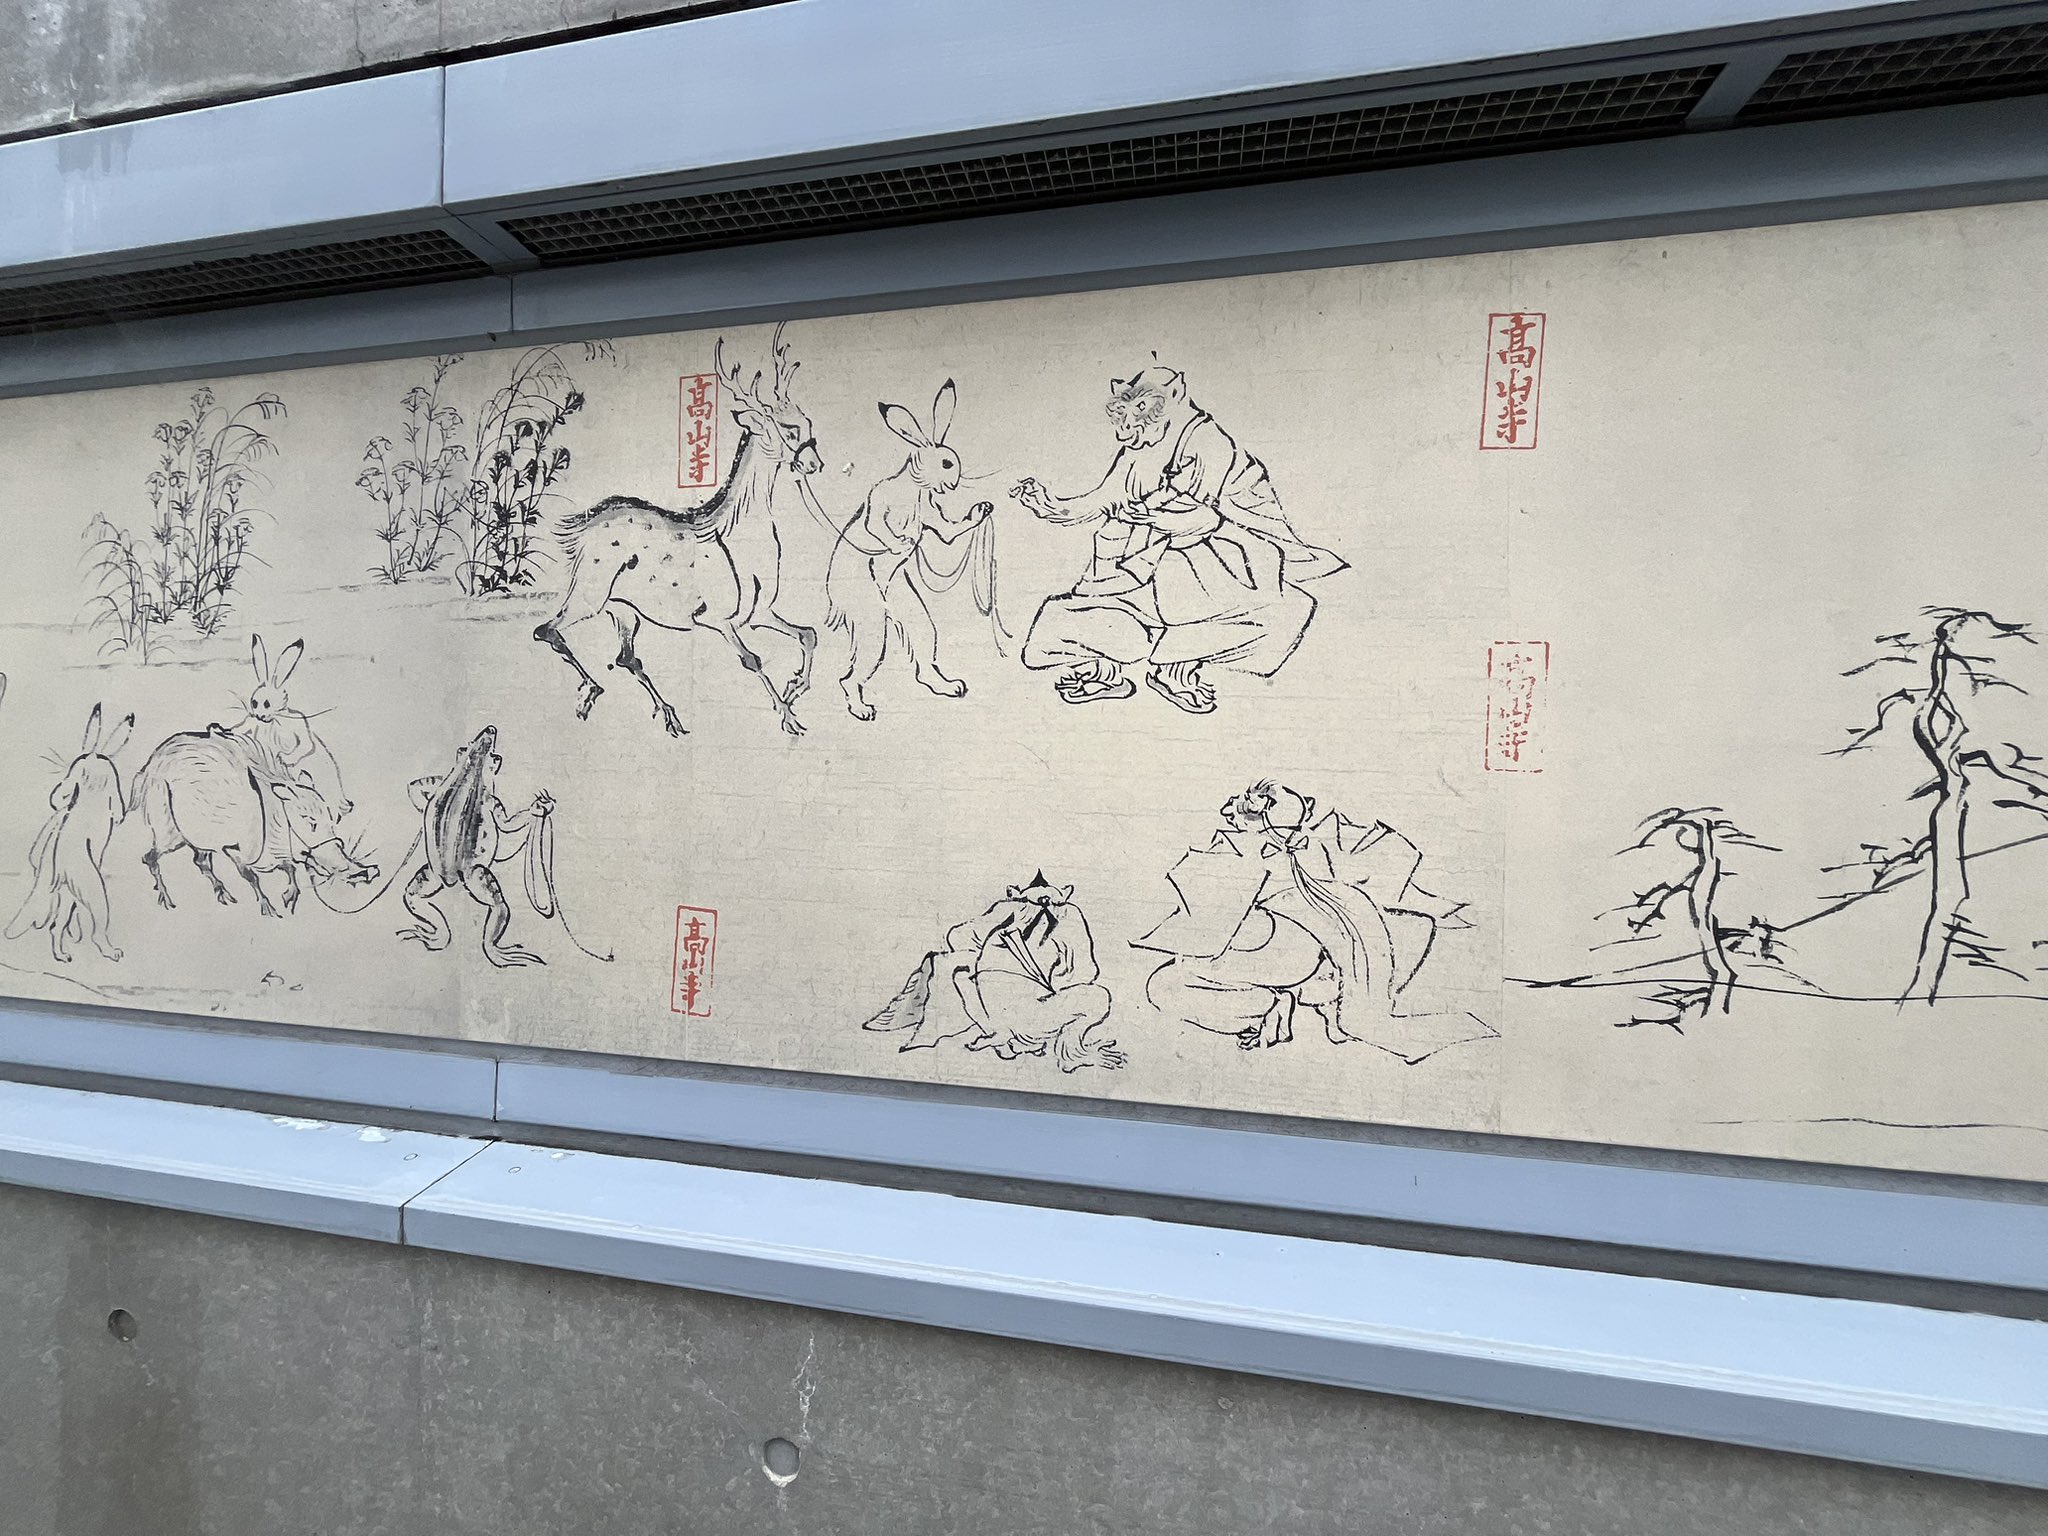 高山寺
高山寺
高山寺
高山寺